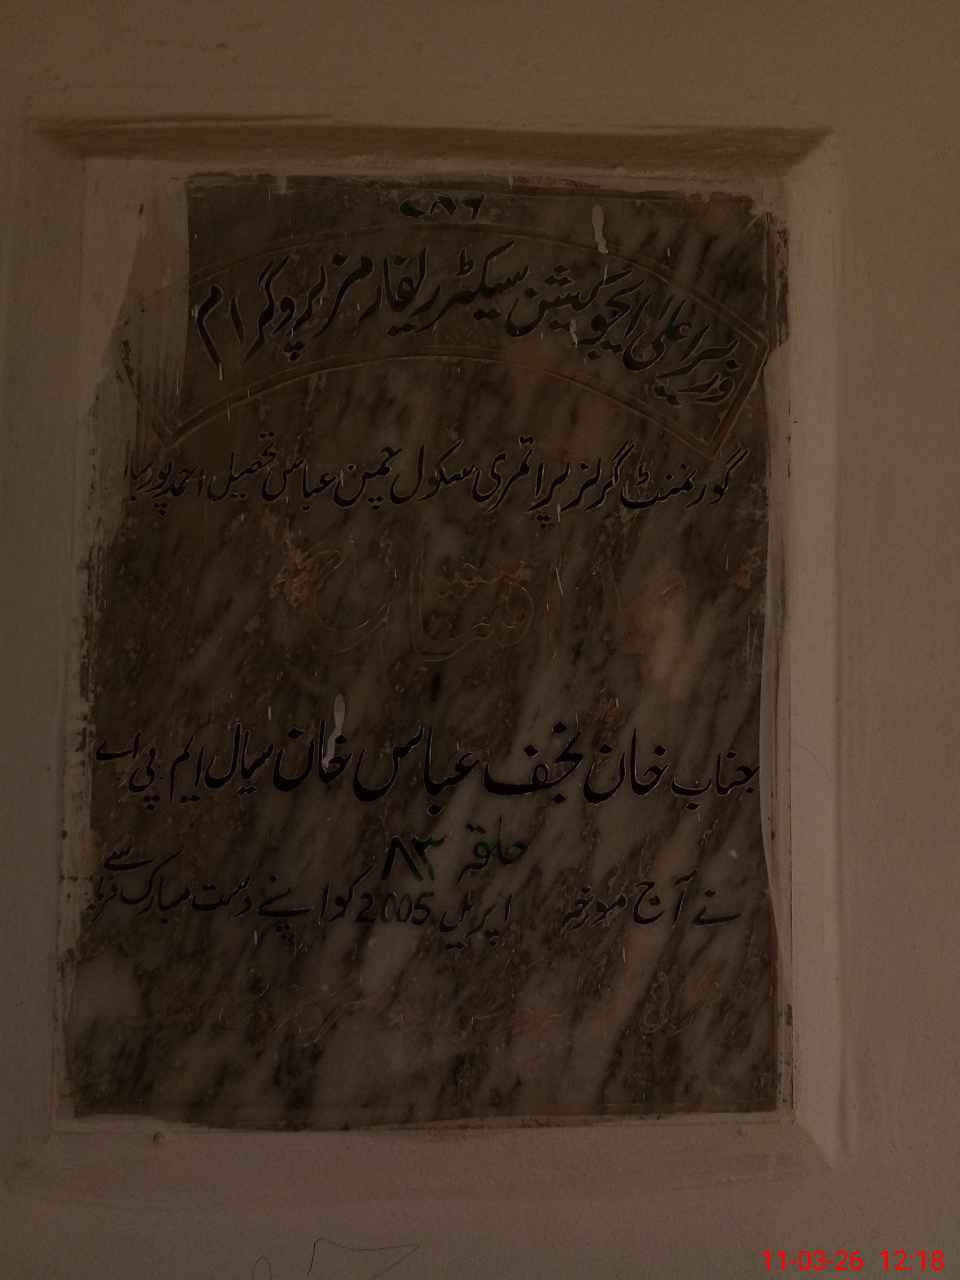 ۷۸۶
وزیر اعلیٰ ایجوکیشن سیکٹر ریفارمز پروگرام
گورنمنٹ گرلز پرائمری سکول چمپن عباس تحصیل احمد پور سیا
افتتاح
جناب خان نجف عباس خان سیال ایم پی اے
حلقہ ۸۳
نے آج مورخہ اپریل 2005 کو اپنے دست مبارک سے
11-03-26 12:18